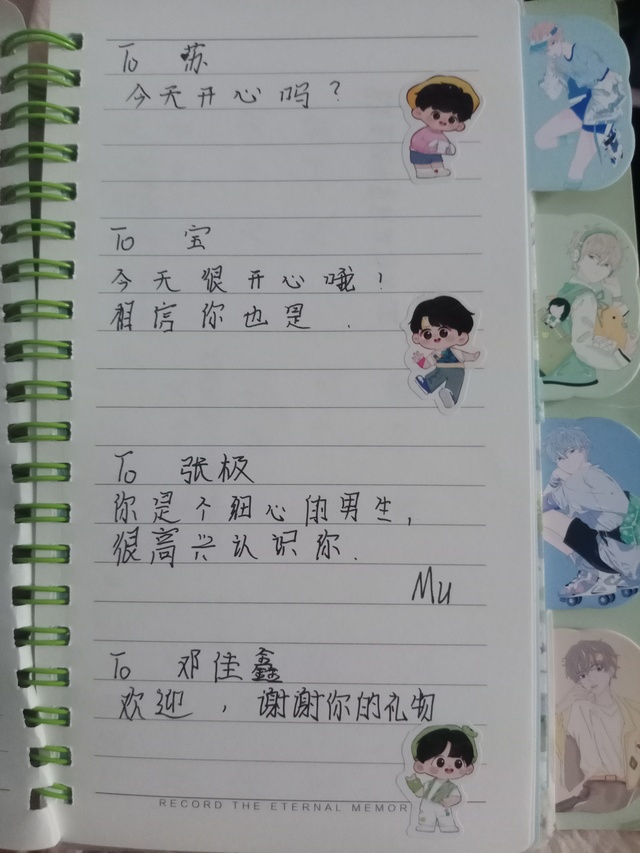 To 苏
今天开心吗？
To 宝
今天很开心哦！
相信你也是.
To 张极
你是个细心的男生,
很高兴认识你.
Mu
To 邓佳鑫
欢迎,谢谢你的礼物
RECORD THE ETERNAL MEMOR